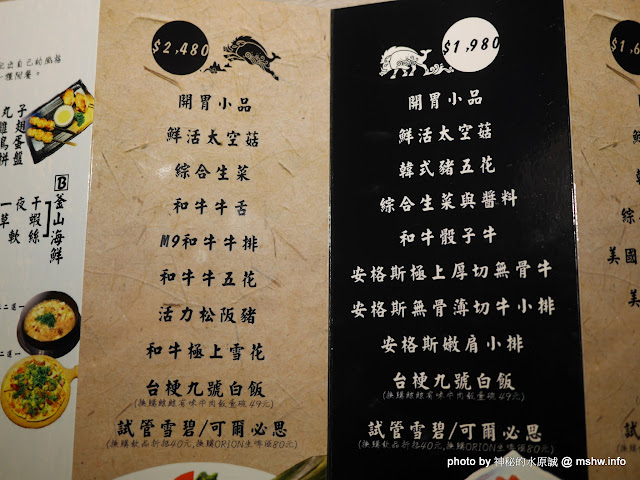 丸子
雞翅
鳥蛋
拼盤
B
釜山海鮮
一夜干
草蝦
軟絲
二選一
二選一
$2,480
開胃小品
鮮活太空菇
綜合生菜
和牛牛舌
M9和牛牛排
和牛牛五花
活力松阪豬
和牛極上雪花
台梗九號白飯
試管雪碧/可爾必思
(換購飲品折抵40元,換購ORION生啤須80元)
$1,980
開胃小品
鮮活太空菇
韓式豬五花
綜合生菜與醬料
和牛骰子牛
安格斯極上厚切無骨牛
安格斯無骨薄切牛小排
安格斯嫩肩小排
台梗九號白飯
試管雪碧/可爾必思
(換購飲品折抵40元,換購ORION生啤須80元)
美國
美
photo by 神秘的水原誠 @ mshw.info